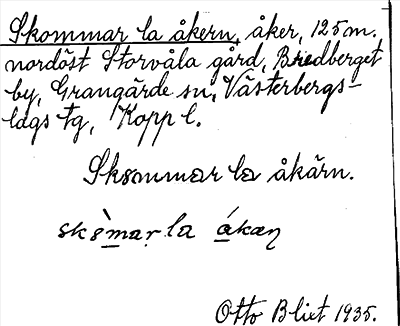 Skommar la åkern, åker, 125 m.
nordöst Storvåla gård, Bredberget
by, Grangärde sn, Västerbergs-
lags tg, Kopp l.
Skommar la åkärn.
skòmaṛ la ákaṇ
Otto Blixt 1935.